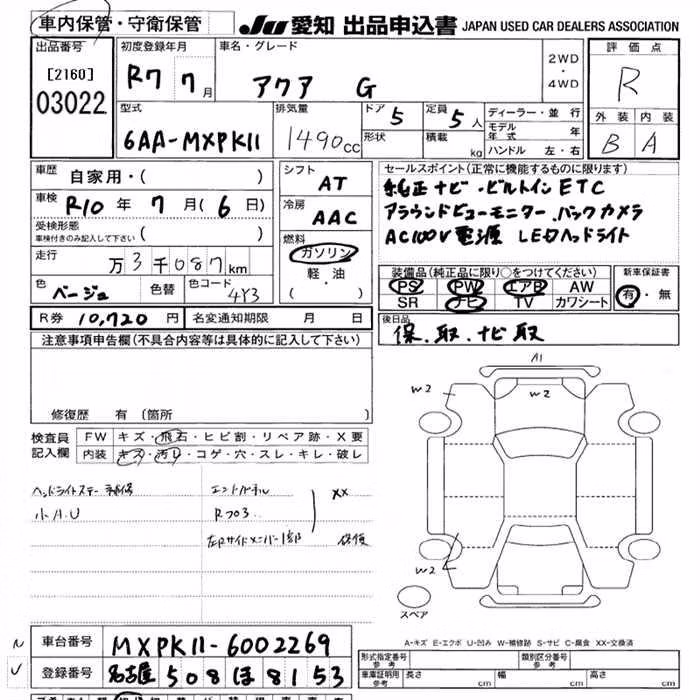 車内保管・守衛保管 JU 愛知 出品申込書 JAPAN USED CAR DEALERS ASSOCIATION
出品番号 初度登録年月 車名・グレード 2WD・4WD 評価点
[2160] R7 7月 アクア G R
03022
型式 排気量 ドア 5 定員 5人 ディーラー・並行 外装 内装
6AA-MXPK11 1490cc 形状 積載 kg モデル年式 年 B A
ハンドル 左・右
車歴 自家用・( ) シフト AT セールスポイント(正常に機能するものに限ります)
車検 R10年 7月(6日) 冷房 AAC 純正ナビ・ビルトインETC
受検形態 ( ) アラウンドビューモニター.バックカメラ
車検付きのみ記入して下さい 燃料 AC100V電源 LEDヘッドライト
走行 万3千087km ガソリン 装備品(純正品に限り○をつけてください) 新車保証書
軽・油 PS PW エアB AW 有・無
色 ベージュ 色替 色コード 4Y3 ・( ) SR ナビ TV カワシート
R券 10,720円 名変通知期限 月 日 後日品
保.取.ナビ取
注意事項申告欄(不具合内容等は具体的に記入して下さい)
A1
W2 W2
修復歴 有(箇所 )
検査員 FW キズ・飛石・ヒビ割・リペア跡・X要
記入欄 内装 キズ・汚レ・コゲ・穴・スレ・キレ・破レ
ヘッドライトステー エンドパネル XX
小A.U R703.
左Rサイドメンバー1部
W2
スペア
A-キズ E-エクボ U-凹み W-補修跡 S-サビ C-腐食 XX-交換済
車台番号 MXPK11-6002269
登録番号 名古屋 508 ほ 8153
形式指定番号 参考 類別区分番号 参考
車庫証明用 参考 長さ cm 幅 cm 高さ cm